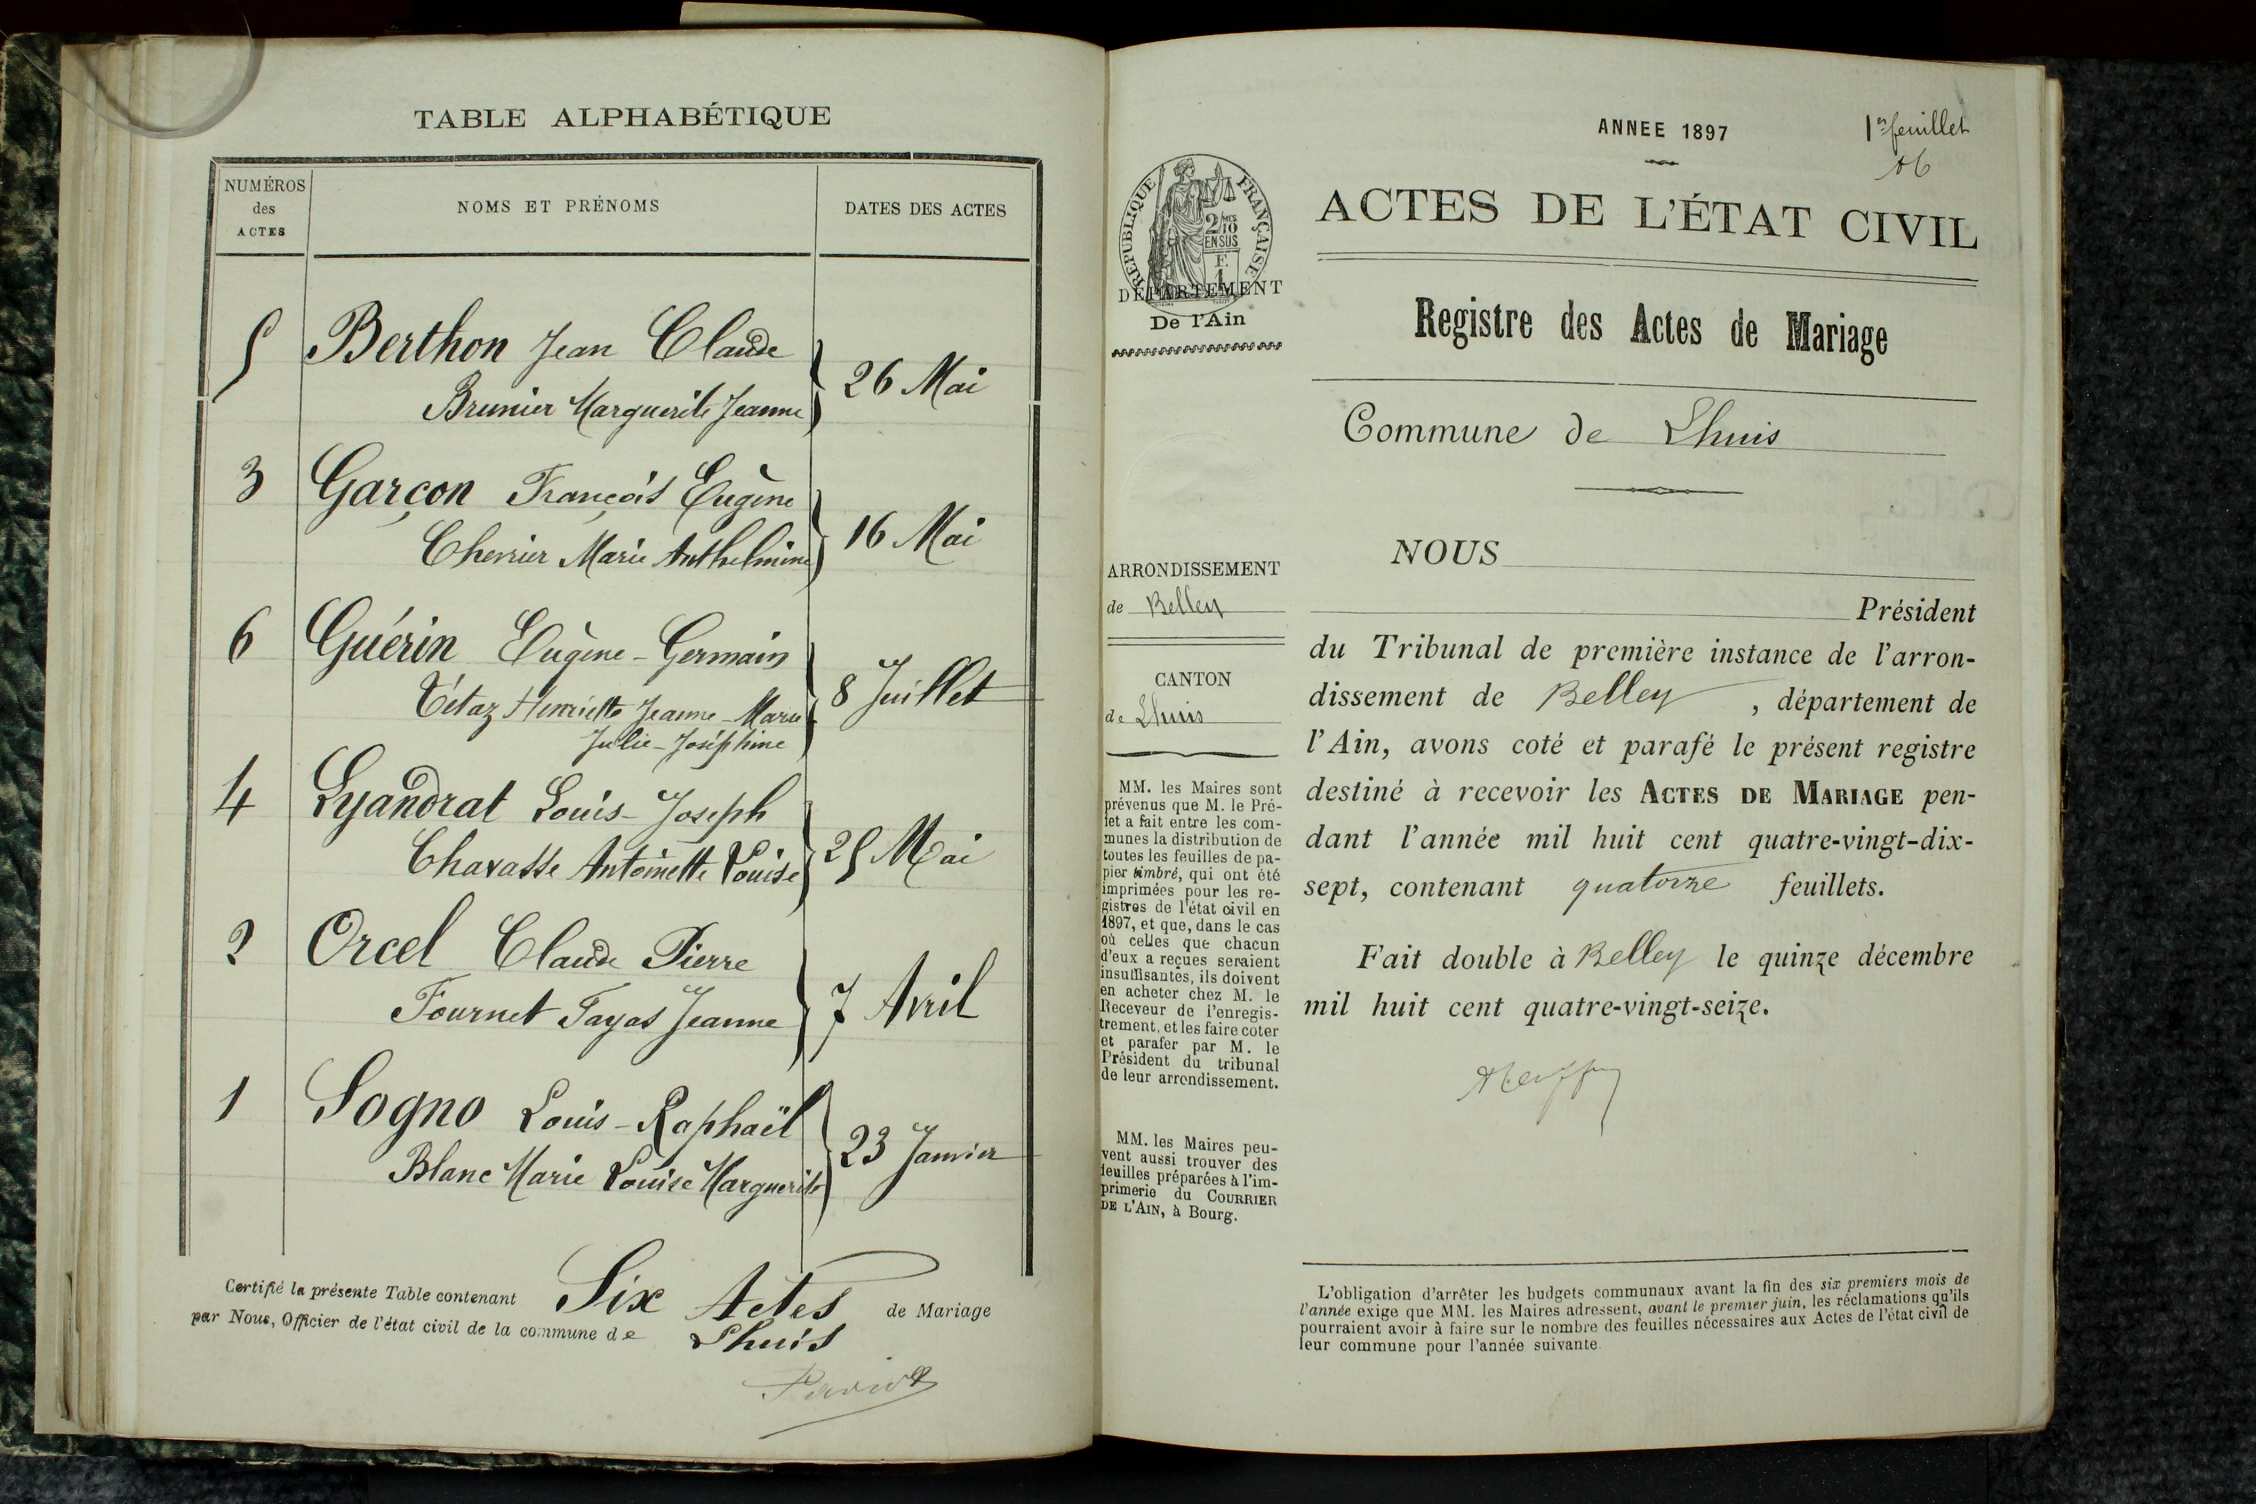 TABLE ALPHABÉTIQUE
NUMÉROS
des
ACTES
NOMS ET PRÉNOMS
DATES DES ACTES
5 Berthon Jean Claude
Brunier Marguerite Jeanne
26 Mai
3 Garçon François Eugène
Chevrier Marie Anthelmine
16 Mai
6 Guérin Eugène-Germain
Tétaz Henriette Jeanne-Marie
Julie-Joséphine
8 Juillet
4 Lyandrat Louis-Joseph
Chavasse Antoinette Louise
25 Mai
2 Orcel Claude Pierre
Fournet Fayas Jeanne
7 Avril
1 Sogno Louis-Raphaël
Blanc Marie Louise Marguerite
23 Janvier
Certifié la présente Table contenant Six Actes de Mariage
par Nous, Officier de l'état civil de la commune de Lhuis
ANNEE 1897
1er feuillet
RÉPUBLIQUE FRANÇAISE
2/10
EN SUS
DÉPARTEMENT
De l'Ain
ACTES DE L'ÉTAT CIVIL
Registre des Actes de Mariage
Commune de Lhuis
ARRONDISSEMENT
de Belley
CANTON
de Lhuis
MM. les Maires sont
prévenus que M. le Pré-
fet a fait entre les com-
munes la distribution de
toutes les feuilles de pa-
pier timbré, qui ont été
imprimées pour les re-
gistres de l'état civil en
1897, et que, dans le cas
où celles que chacun
d'eux a reçues seraient
insuffisantes, ils doivent
en acheter chez M. le
Receveur de l'enregis-
trement, et les faire coter
et parafer par M. le
Président du tribunal
de leur arrondissement.
MM. les Maires peu-
vent aussi trouver des
feuilles préparées à l'im-
primerie du COURRIER
DE L'AIN, à Bourg.
NOUS
Président
du Tribunal de première instance de l'arron-
dissement de Belley, département de
l'Ain, avons coté et parafé le présent registre
destiné à recevoir les ACTES DE MARIAGE pen-
dant l'année mil huit cent quatre-vingt-dix-
sept, contenant quatorze feuillets.
Fait double à Belley le quinze décembre
mil huit cent quatre-vingt-seize.
L'obligation d'arrêter les budgets communaux avant la fin des six premiers mois de
l'année exige que MM. les Maires adressent, avant le premier juin, les réclamations qu'ils
pourraient avoir à faire sur le nombre des feuilles nécessaires aux Actes de l'état civil de
leur commune pour l'année suivante.